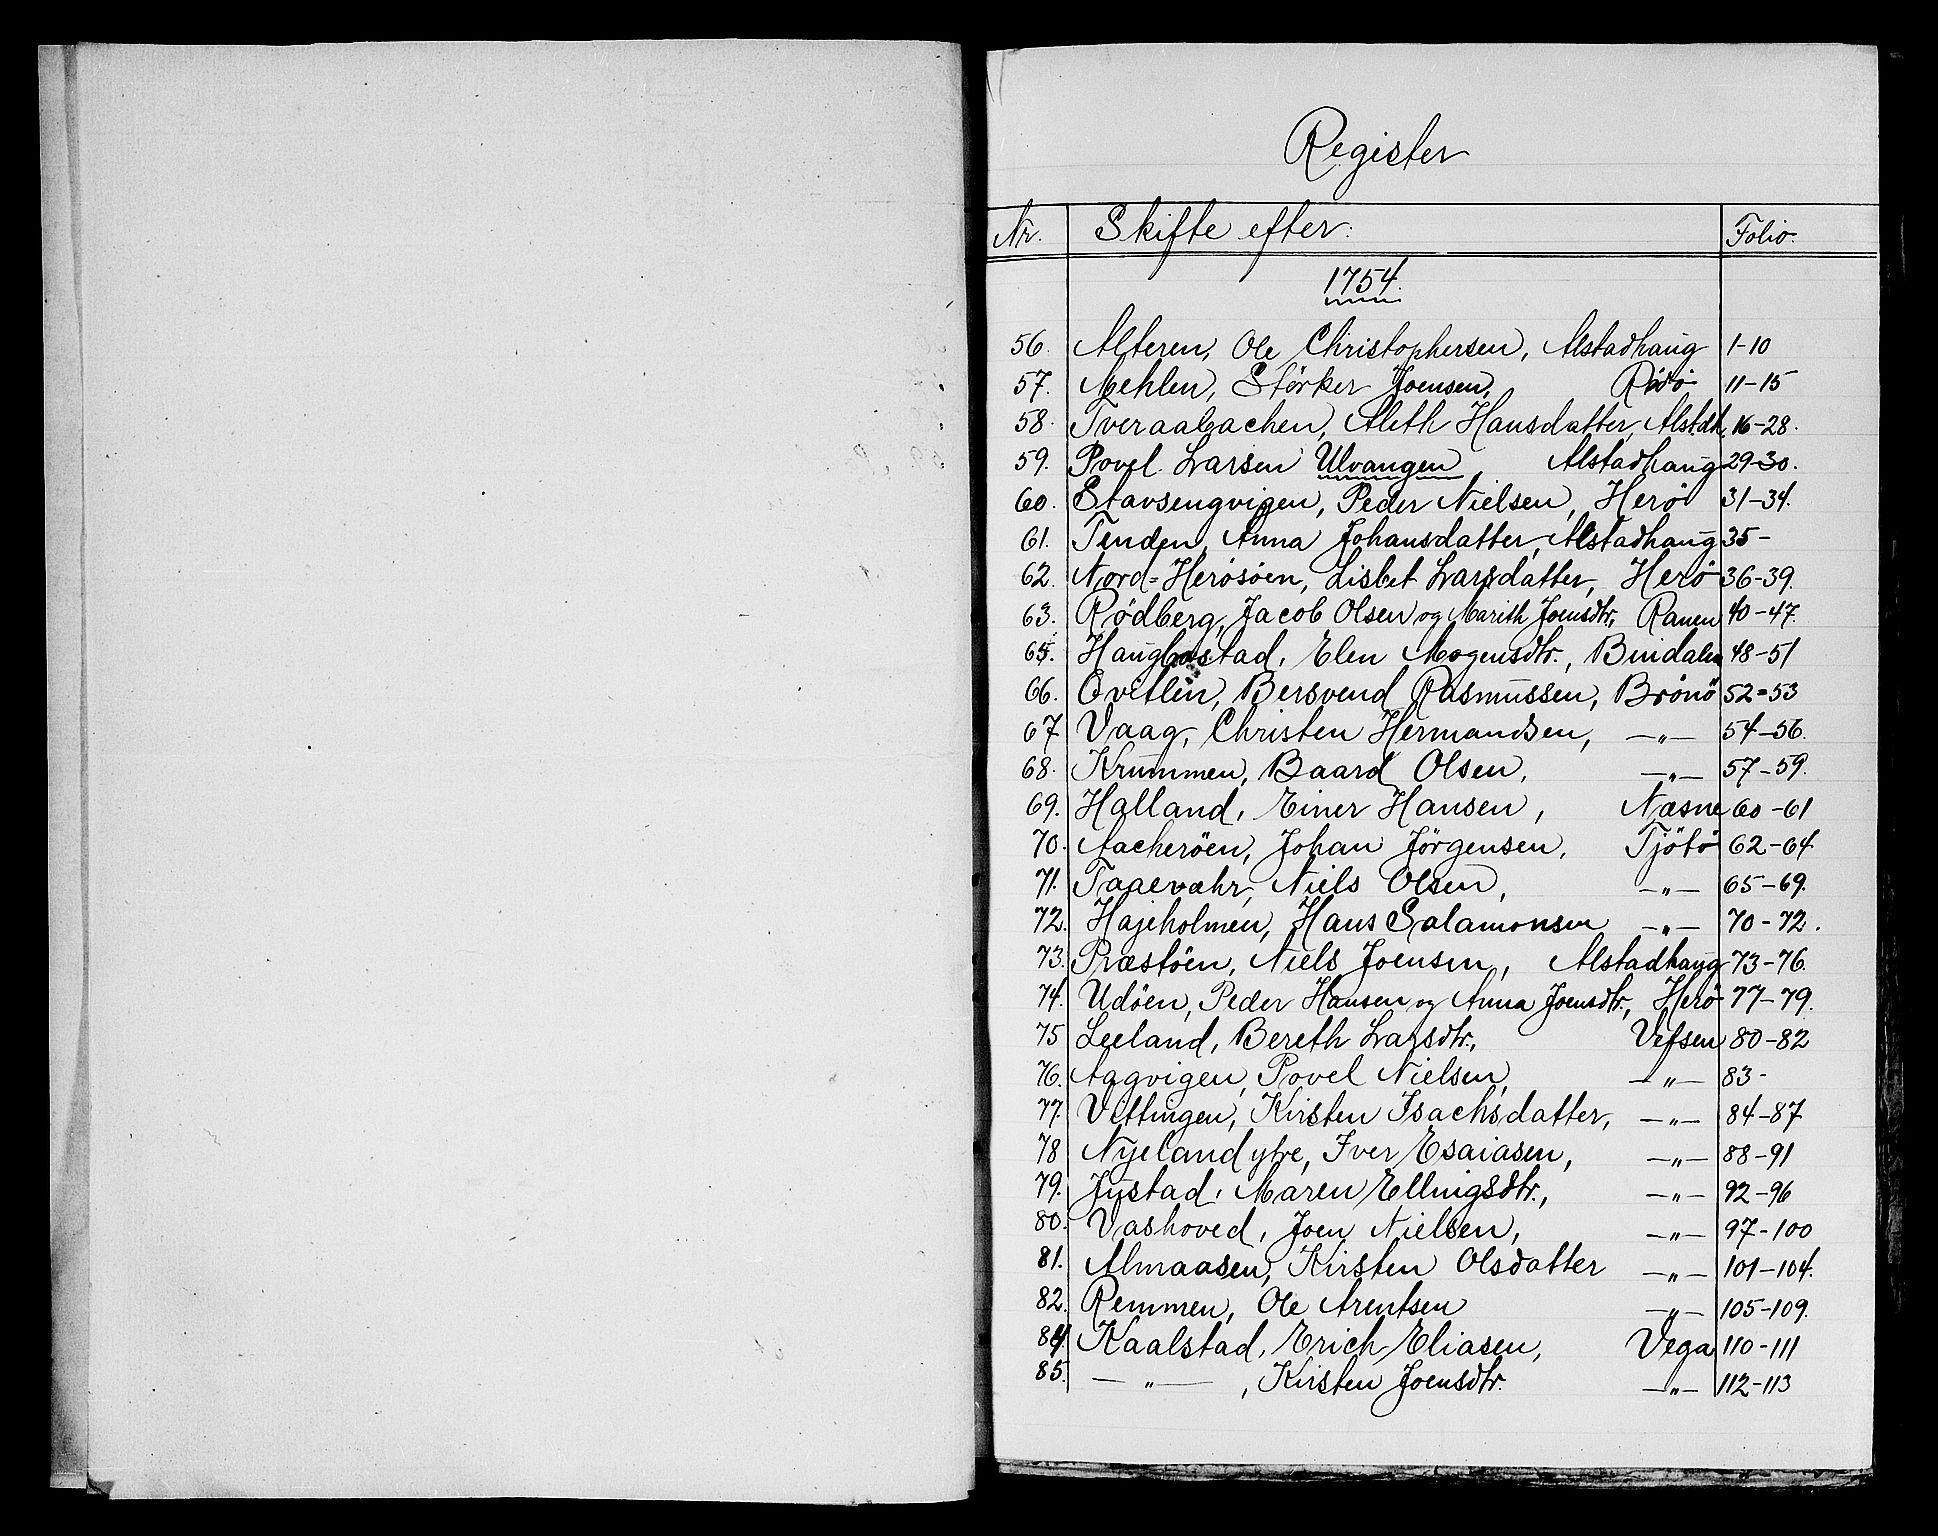 Register
Nr. Skifte efter: Folio.
1754.
56. Alteren, Ole Christophersen, Alstadhaug 1-10
57. Mehlen, Størker Joensen, Rödö 11-15
58. Tveraabachen, Aleth Hansdatter, Alstdh. 16-28.
59. Povel Larsen Ulvangen, Alstadhaug 29-30.
60. Stavsengvigen, Peder Nielsen, Herö 31-34.
61. Tenden, Anna Johansdatter, Alstadhaug 35-
62. Nord-Herösöen, Lisbet Larsdatter, Herö 36-39.
63. Rödberg, Jacob Olsen og Marith Joensdtr, Ranen 40-47.
65. Haugbostad, Elen Mogensdtr., Bindalen 48-51
66. Qvitlen, Bersvend Rasmussen, Brönö 52=53
67 Vaag, Christen Hermandsen, —„— 54-56.
68. Krummen, Baard Olsen, —„— 57-59.
69. Halland, Einer Hansen, Næsne 60-61
70. Aacheröen, Johan Jörgensen, Tjötö 62-64
71. Taaevæhr, Niels Olsen, —„— 65-69.
72. Hajeholmen, Hans Salamonsen —„— 70-72.
73. Præstöen, Niels Joensen, Alstadhaug 73-76.
74. Udöen, Peder Hansen og Anna Joensdtr., Herö 77-79.
75 Leeland, Bereth Larsdtr., Vefsen 80-82
76. Aagvigen, Povel Nielsen, —„— 83-
77. Vettingen, Kirsten Isachsdatter, —„— 84-87
78 Nyeland ytre, Iver Esaiasen, —„— 88-91
79. Jüstad, Maren Ellingsdtr., —„— 92-96
80. Vashoved, Joen Nielsen, —„— 97-100
81. Almaasen, Kirsten Olsdatter —„— 101-104.
82. Remmen, Ole Arentsen —„— 105-109.
84. Kaalstad, Erich Eliasen, Vega 110-111
85. —„—, Kirsten Joensdtr. —„— 112-113